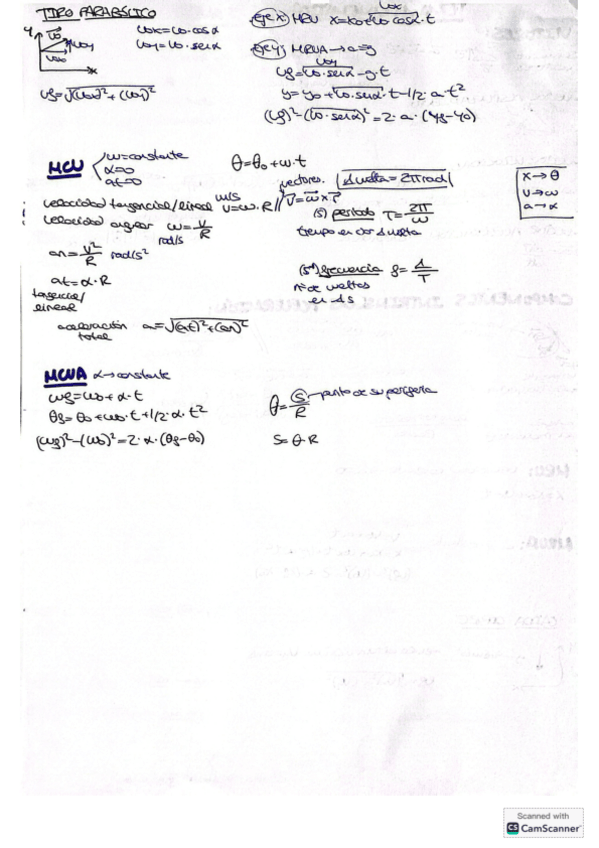 TIRO PARABÓLICO
y
v0
v0y
v0x
x
v0x = v0·cosα
v0y = v0·senα
vf = √(v0x)² + (v0y)²
eje x) MRU x = x0 + v0 cosα·t
v0x
eje y) MRUA → a=g
v0y
vf = v0·senα - g·t
y = y0 + v0·senα·t - 1/2·a·t²
(vf)² - (v0·senα)² = 2·a·(yf - y0)
MCU
ω=constante
α=0
at=0
θ = θ0 + ω·t
vectores.
1 vuelta = 2π rad
velocidad tangencial/lineal v=ω·R // v = ω x r
m/s
velocidad angular ω = v/R
rad/s
(s) periodo T = 2π/ω
tiempo en dar 1 vuelta
x → θ
v → ω
a → α
an = v²/R rad/s²
at = α·R
tangencial/
lineal
(s⁻¹) frecuencia f = 1/T
nº de vueltas
en 1s
aceleración a = √(at)² + (an)²
total
MCUA α → constante
ωf = ω0 + α·t
θf = θ0 + ω0·t + 1/2·α·t²
(ωf)² - (ω0)² = 2·α·(θf - θ0)
θ = S/R
S = θ·R
Scanned with
CS CamScanner